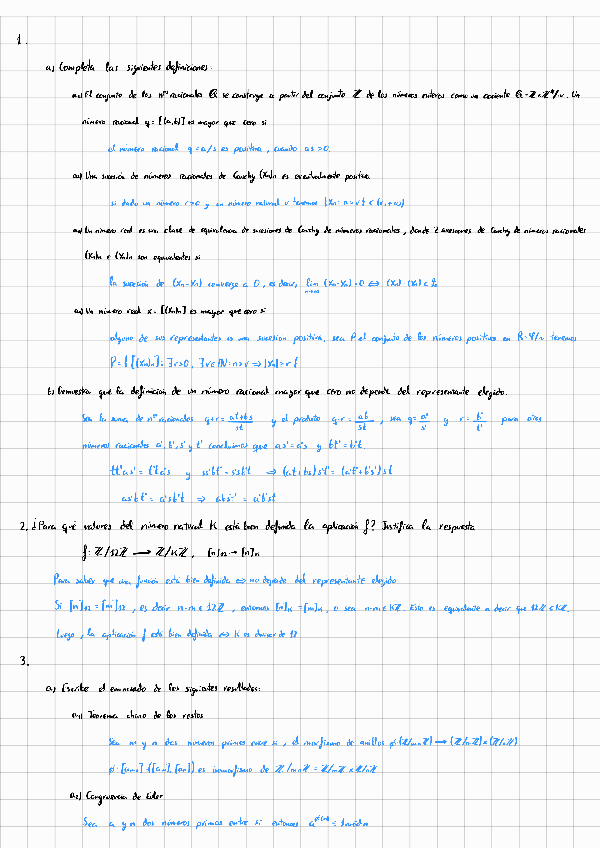 1.
a) Completa las siguientes definiciones:
a1) El conjunto de los nºs racionales Q se construye a partir del conjunto Z de los números enteros como un cociente Q = Z×Z*/~. Un
número racional q = [(a,b)] es mayor que cero si
el número racional q = a/s es positivo, cuando as > 0.
a2) Una sucesión de números racionales de Cauchy (Xn)n es eventualmente positiva
si dado un número r>0 y un número natural v tenemos {Xn : n>v} ⊂ (r,+∞)
a3) Un número real es una clase de equivalencia de sucesiones de Cauchy de números racionales, donde 2 sucesiones de Cauchy de números racionales
(Xn)n e (Yn)n son equivalentes si
la sucesión de (Xn-Yn) converge a 0, es decir, lim n→∞ (Xn-Yn) = 0 ⟺
a4) Un número real x = [(Xn)n] es mayor que cero si
alguno de sus representantes es una sucesión positiva, sea P el conjunto de los números positivos en R = tenemos
P = {[(Xn)n] : ∃ r>0, ∃ v∈N : n>v ⟹ |Xn|>r}
b) Demuestra que la definición de un número racional mayor que cero no depende del representante elegido.
Sea la suma de nºs racionales q+r = at+bs/st y el producto q·r = ab/st, sea q = a'/s' y r = b'/t' para
números racionales a', b', s' y t' concluimos que as' = a's y bt' = b't.
tt'as' = t't a's y ss'bt' = s'sb't ⟹ (at+bs)s't' = (a't'+b's')st
as'bt' = a'sb't ⟹ abs't' = a'b'st
2. ¿Para qué valores del número natural K está bien definida la aplicación f? Justifica la respuesta
f: Z/12Z ⟶ Z/KZ, [n]12 → [n]K
Para saber que una función está bien definida ⟺ no depende del representante elegido
Si [n]12 = [m]12, es decir n-m ∈ 12Z, entonces [n]K = [m]K, o sea n-m ∈ KZ. Esto es equivalente a decir que 12Z ⊂ KZ.
Luego, la aplicación f está bien definida ⟺ K es divisor de 12
3.
a) Escribe el enunciado de los siguientes resultados:
a1) Teorema chino de los restos
Sea m y n dos números primos entre sí, el morfismo de anillos ø: (Z/mnZ) ⟶ (Z/mZ)×(Z/nZ)
ø: [amn] → ([am],[an]) es isomorfismo de Z/mnZ = Z/mZ × Z/nZ
a2) Congruencia de Euler
Sea a y n dos números primos entre sí entonces a^ø(n) ≡ 1 mód n